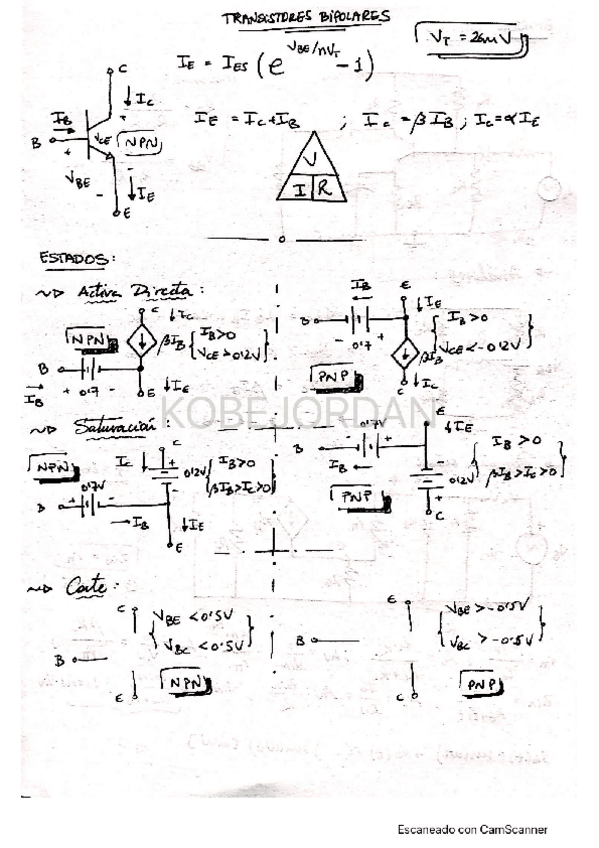 TRANSISTORES BIPOLARES
V_T = 26mV
I_E = I_ES (e^(V_BE/nV_T) - 1)
C
I_C
I_B
B
V_CE
NPN
V_BE
I_E
E
I_E = I_C + I_B ; I_C = βI_B ; I_C = αI_E
V
I R
ESTADOS:
Activa Directa:
C I_C
NPN
βI_B { I_B > 0
V_CE > 0'2V }
B
I_B + 0'7 -
E I_E
I_B E
I_E
B
- 0'7 +
PNP
βI_B
{ I_B > 0
V_CE < -0'2V }
C I_C
KOBEJORDAN
Saturación:
C
NPN
I_C + 0'2V -
{ I_B > 0
βI_B > I_C > 0 }
0'7V
B + -
I_B I_E
E
0'7V E
I_E
B - +
I_B
PNP
- 0'2V +
C
{ I_B > 0
βI_B > I_C > 0 }
Corte:
C
{ V_BE < 0'5V
V_BC < 0'5V }
B
E
NPN
E
{ V_BE > -0'5V
V_BC > -0'5V }
B
C
PNP
Escaneado con CamScanner